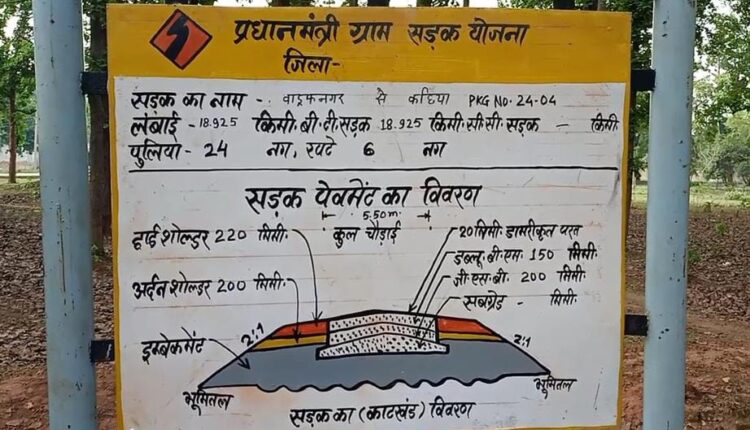 प्रधानमंत्री ग्राम सड़क योजना
जिला-
सड़क का नाम - वाड्रफनगर से कछिया PKG NO. 24-04
लंबाई - 18.925 किमी. बी.टी. सड़क 18.925 किमी. सी.सी. सड़क - किमी
पुलिया - 24 नग, रपटे 6 नग
सड़क पेवमेंट का विवरण
5.50m.
कुल चौड़ाई
हार्ड शोल्डर 220 मिमी.
अर्दन शोल्डर 200 मिमी.
20 मिमी. डामरीकृत परत
डब्लू. बी. एम. 150 मिमी.
जी. एस. बी. 200 मिमी.
सबग्रेड - मिमी.
2:1
2:1
इम्बेकमेंट
भूमितल
भूमितल
सड़क का (काटखंड) विवरण